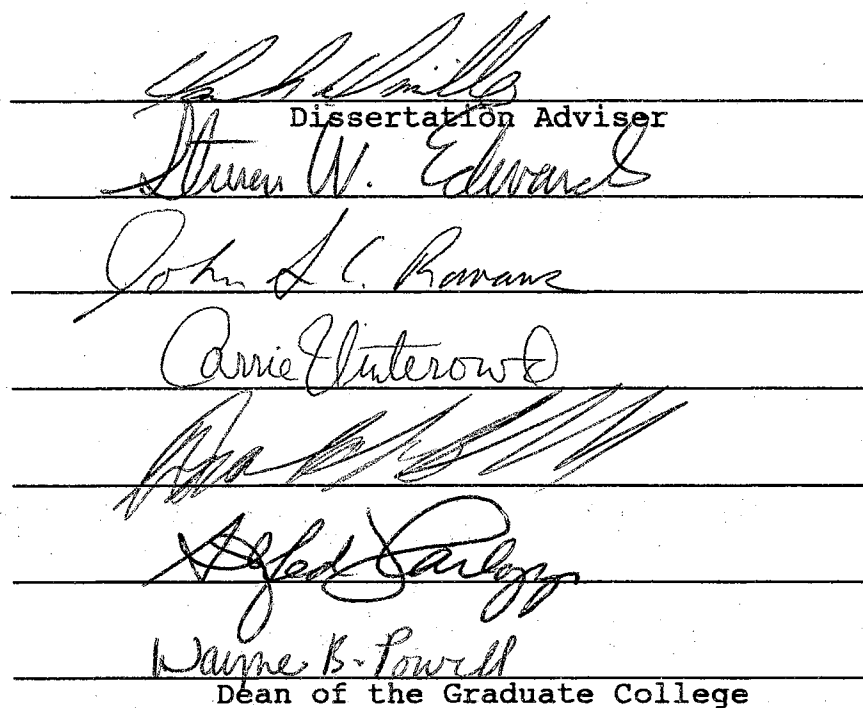 Dissertation Adviser
Steven W. Edwards
John S. C. Romans
Carrie Winterowd
Alfred Carlozzi
Wayne B. Powell
Dean of the Graduate College